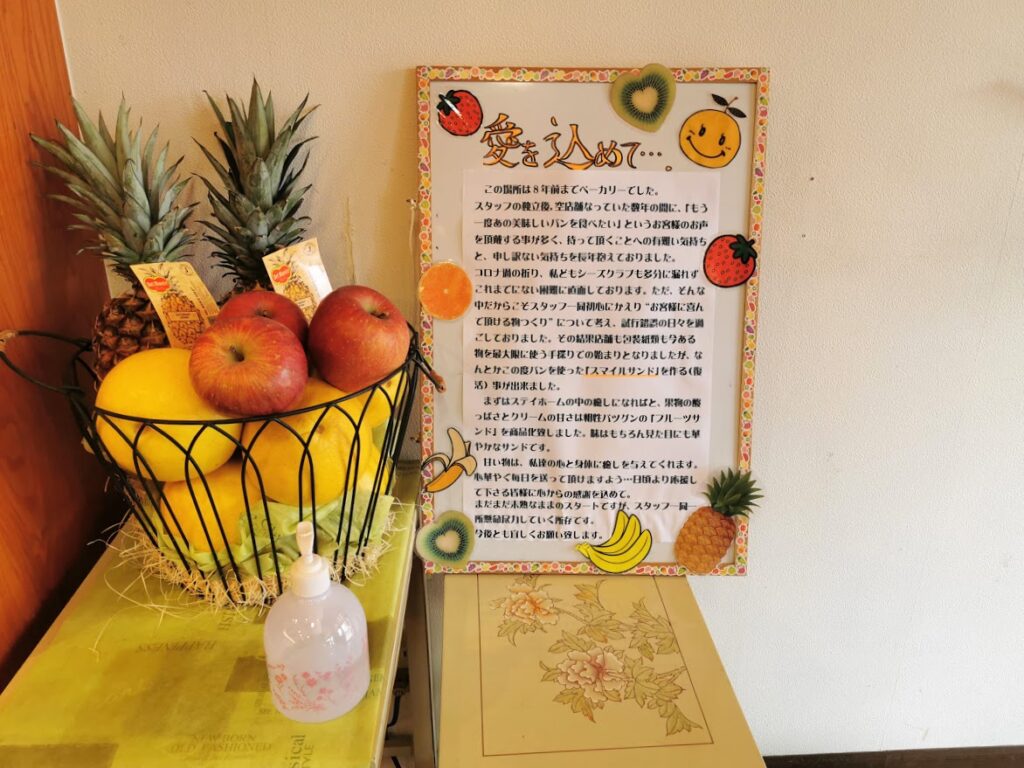 愛を込めて…。
この場所は8年前までベーカリーでした。
スタッフの独立後、空店舗なっていた数年の間に、「もう
一度あの美味しいパンを食べたい」というお客様のお声
を頂戴する事が多く、待って頂くことへの有難い気持ち
と、申し訳ない気持ちを長年抱えておりました。
コロナ渦の折り、私どもシーズクラブも多分に漏れず
これまでにない困難に直面しております。ただ、そんな
中だからこそスタッフ一同初心にかえり“お客様に喜ん
で頂ける物つくり”について考え、試行錯誤の日々を過
ごしておりました。その結果店舗も包装紙類も今ある
物を最大限に使う手探りでの始まりとなりましたが、な
んとかこの度パンを使った「スマイルサンド」を作る（復
活）事が出来ました。
まずはステイホームの中の癒しになればと、果物の酸
っぱさとクリームの甘さは相性バツグンの「フルーツサ
ンド」を商品化致しました。味はもちろん見た目にも華
やかなサンドです。
甘い物は、私達の心と身体に癒しを与えてくれます。
心華やぐ毎日を送って頂けますよう…日頃より応援し
て下さる皆様に心からの感謝を込めて。
まだまだ未熟なままのスタートですが、スタッフ一同一
所懸命尽力していく所存です。
今後とも宜しくお願い致します。
Del Monte
HAPPINESS
NEW BORN
OLD FASHIONED